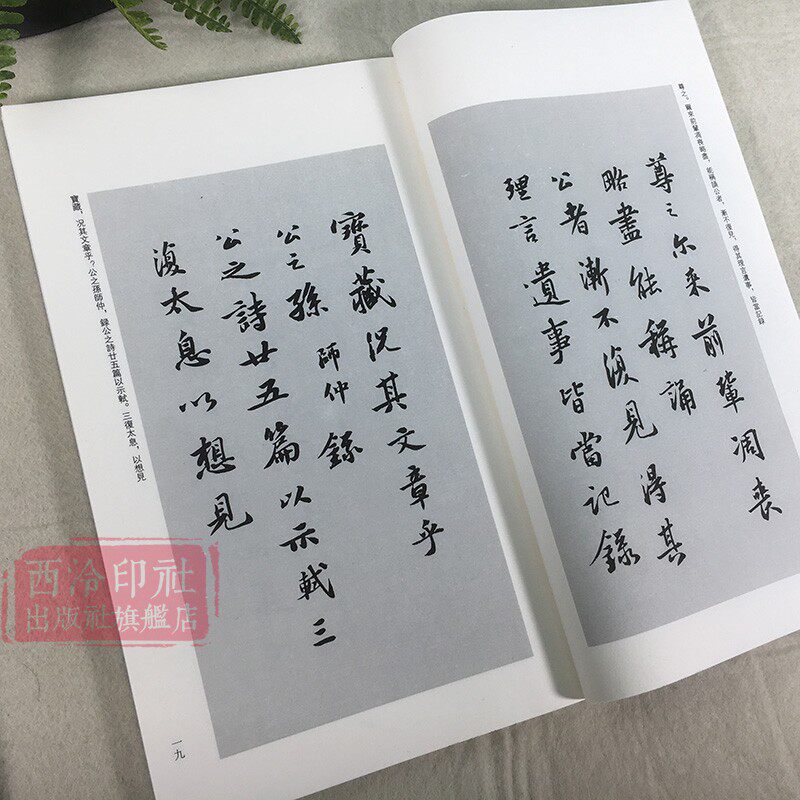 尊之。爾來前輩凋喪略盡，能稱誦公者，漸不復見，得其理言遺事，皆當記錄
尊之尔来前輩凋喪
略盡能稱誦
公者漸不復見得其
理言遺事皆當記錄
寶藏況其文章乎
公之孫師仲錄
公之詩廿五篇以示軾三
復太息以想見
寶藏，况其文章乎？公之孫師仲，錄公之詩廿五篇以示軾。三復太息，以想見
一九
西泠印社
出版社旗艦店